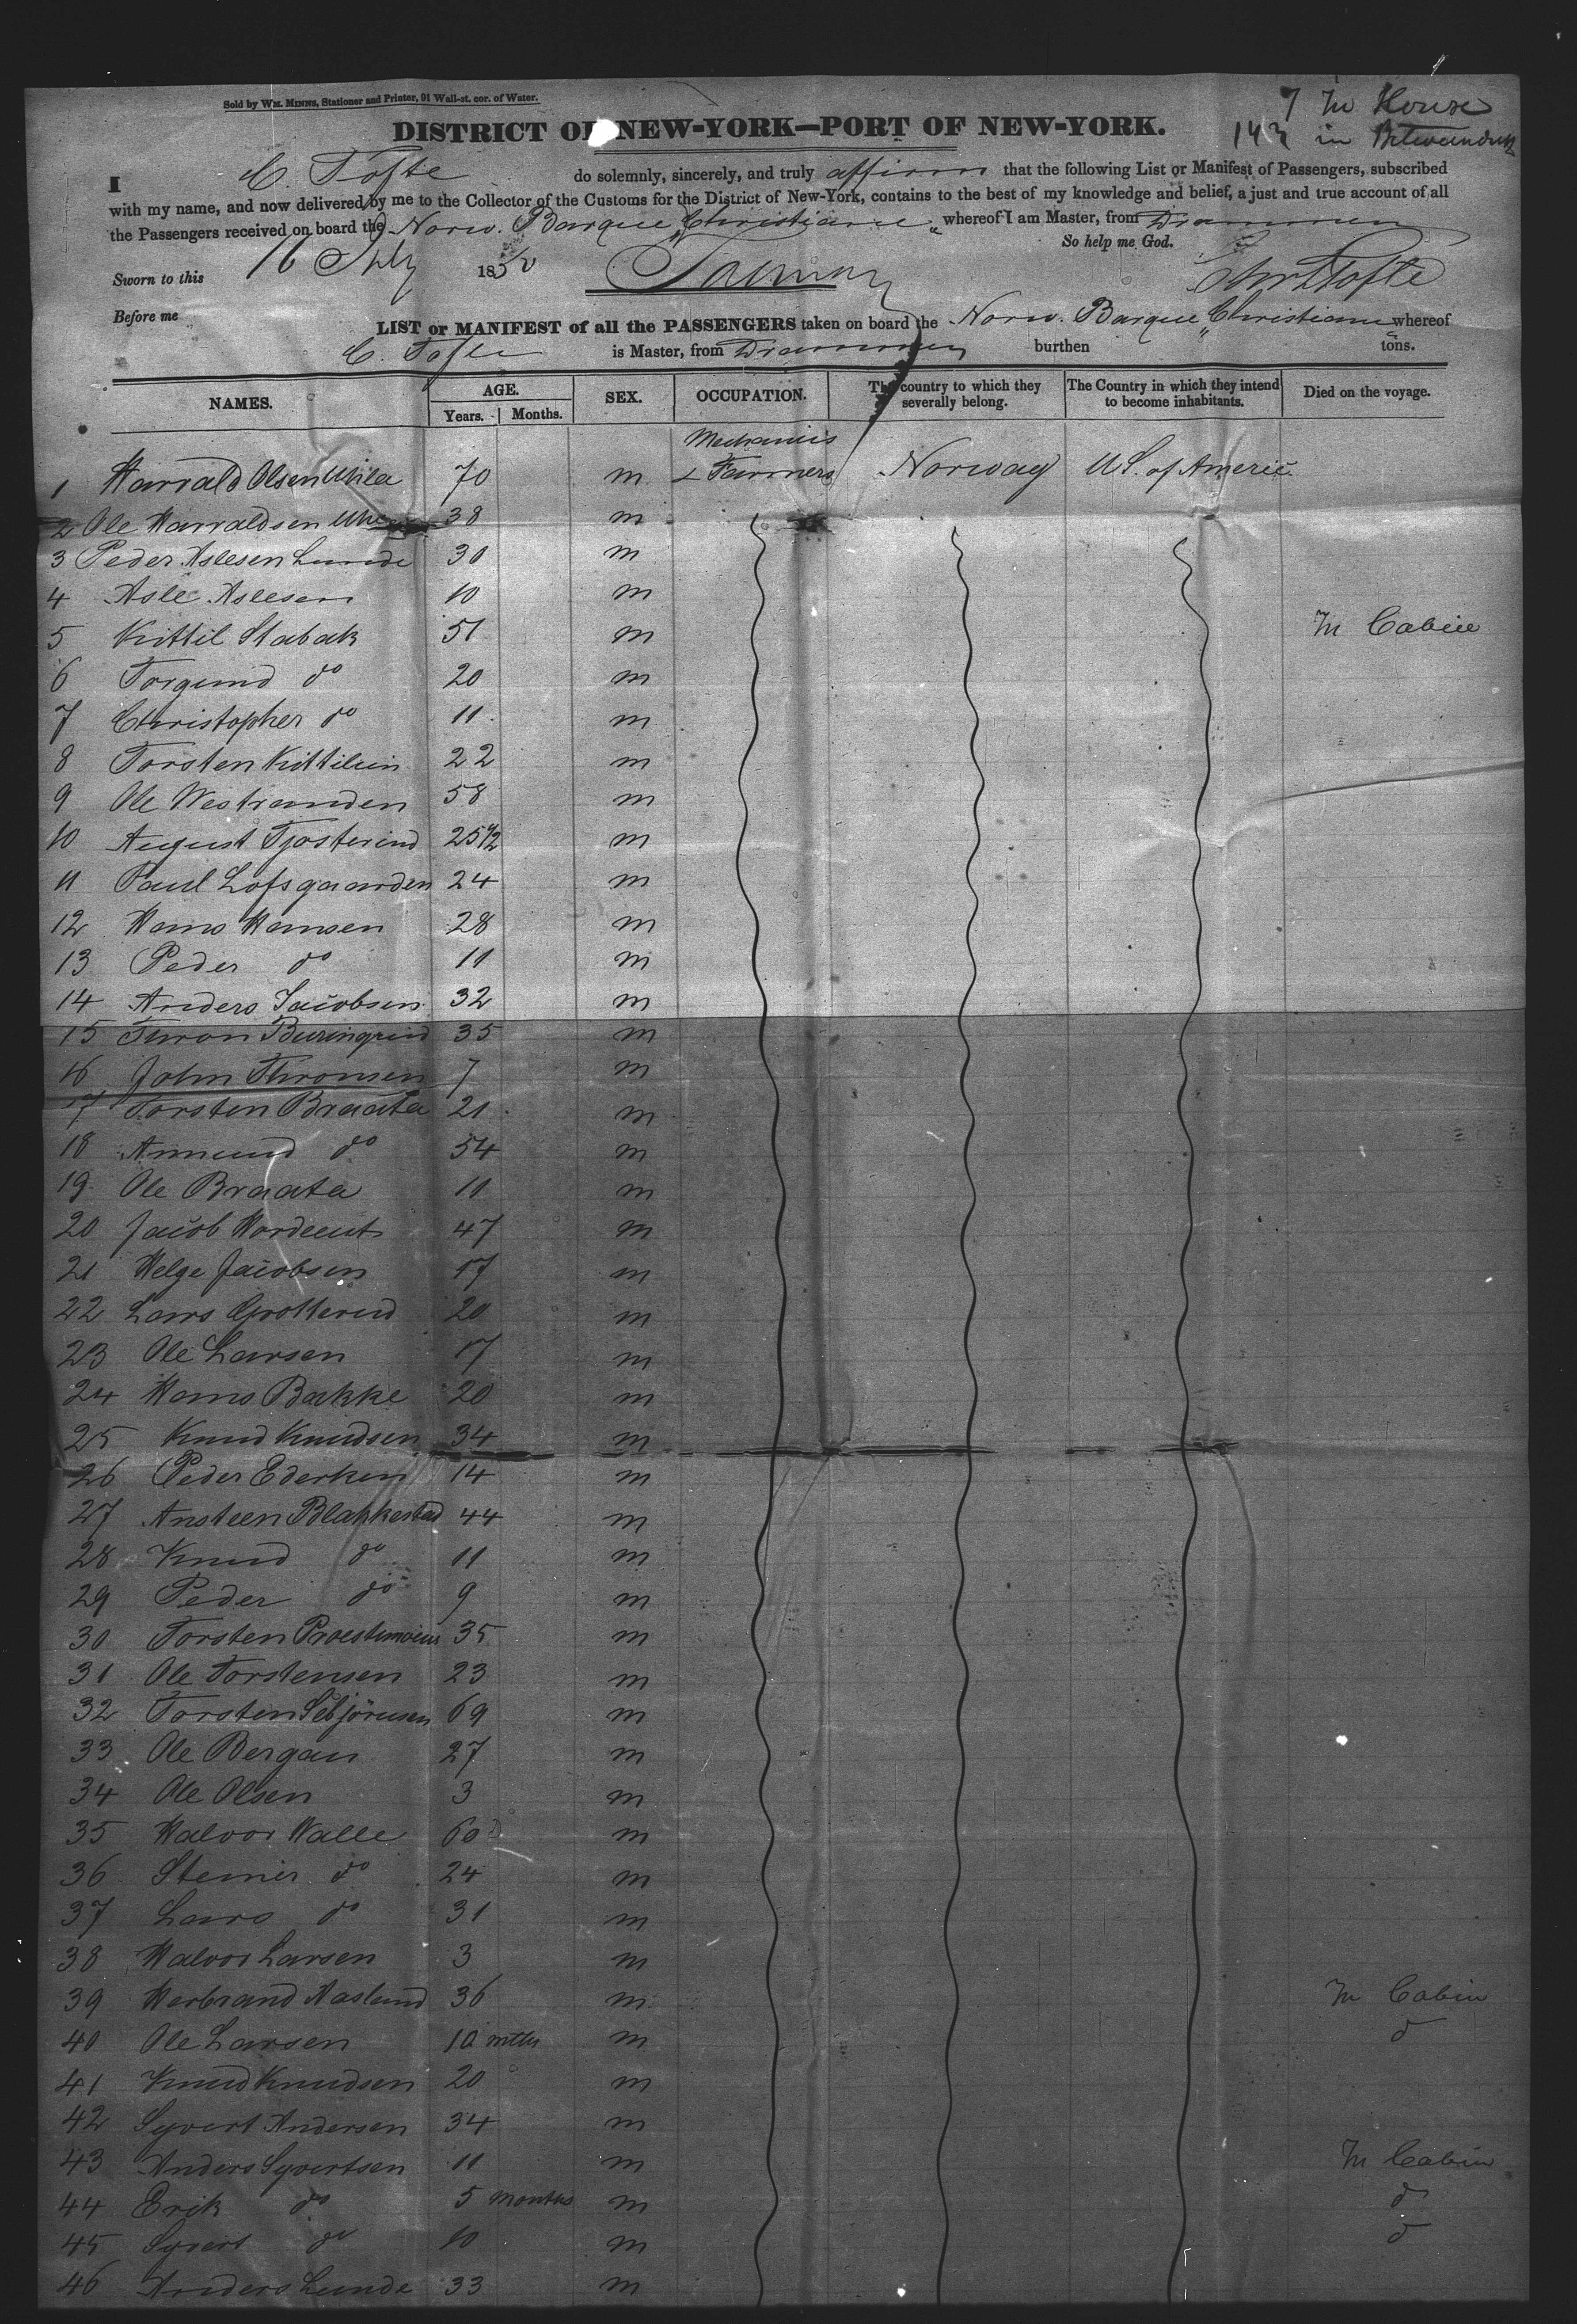 Sold by WM. MINNS, Stationer and Printer, 91 Wall-st. cor. of Water.
7 In House
in
DISTRICT OF NEW-YORK—PORT OF NEW-YORK.
I C. Tofte do solemnly, sincerely, and truly affirm that the following List or Manifest of Passengers, subscribed
with my name, and now delivered by me to the Collector of the Customs for the District of New-York, contains to the best of my knowledge and belief, a just and true account of all
the Passengers received on board the Norw. Barque "Christiane" whereof I am Master, from Drammen
So help me God.
Sworn to this 16 July 1850
Before me
LIST or MANIFEST of all the PASSENGERS taken on board the Norw. Barque "Christiane" whereof
C. Tofte is Master, from Drammen burthen tons.
NAMES. AGE. Years. Months. SEX. OCCUPATION. The country to which they severally belong. The Country in which they intend to become inhabitants. Died on the voyage.
Mechanics
1 Harrald Olsen 70 m & Farmers Norway U S. of Americ
2 Ole Harraldsen 38 m
3 Peder Aslesen Lunde 30 m
4 Asle Aslesen 10 m
5 Kittil Stabak 51 m In Cabin
6 Torgund do 20 m
7 Christopher do 11 m
8 Torsten 22 m
9 Ole Westranden 58 m
10 August 25 1/2 m
11 Paul Lofsgaarden 24 m
12 Hans Hansen 28 m
13 Peder do 11 m
14 Anders Jacobsen 32 m
15 35 m
16 John Thronsen 7 m
17 Torsten Braata 21 m
18 Amund do 54 m
19 Ole Braata 11 m
20 Jacob 47 m
21 Helge Jacobsen 17 m
22 Lars Grotterud 20 m
23 Ole Larsen 17 m
24 Hans Bakke 20 m
25 Knud Knudsen 34 m
26 Peder 14 m
27 Ansteen Blakkestad 44 m
28 Knud do 11 m
29 Peder do 9 m
30 Torsten 35 m
31 Ole Torstensen 23 m
32 Torsten 69 m
33 Ole Bergan 27 m
34 Ole Olsen 3 m
35 Halvor Halle 60 m
36 Steiner do 24 m
37 Lars do 31 m
38 Halvor Larsen 3 m
39 Herbrand Haslund 36 m In Cabin
40 Ole Larsen 10 mths m do
41 Knud Knudsen 20 m
42 Syvert Andersen 34 m
43 Anders Syvertsen 11 m In Cabin
44 Erik do 5 months m do
45 Syvert do 10 m do
46 Anders Lunde 33 m